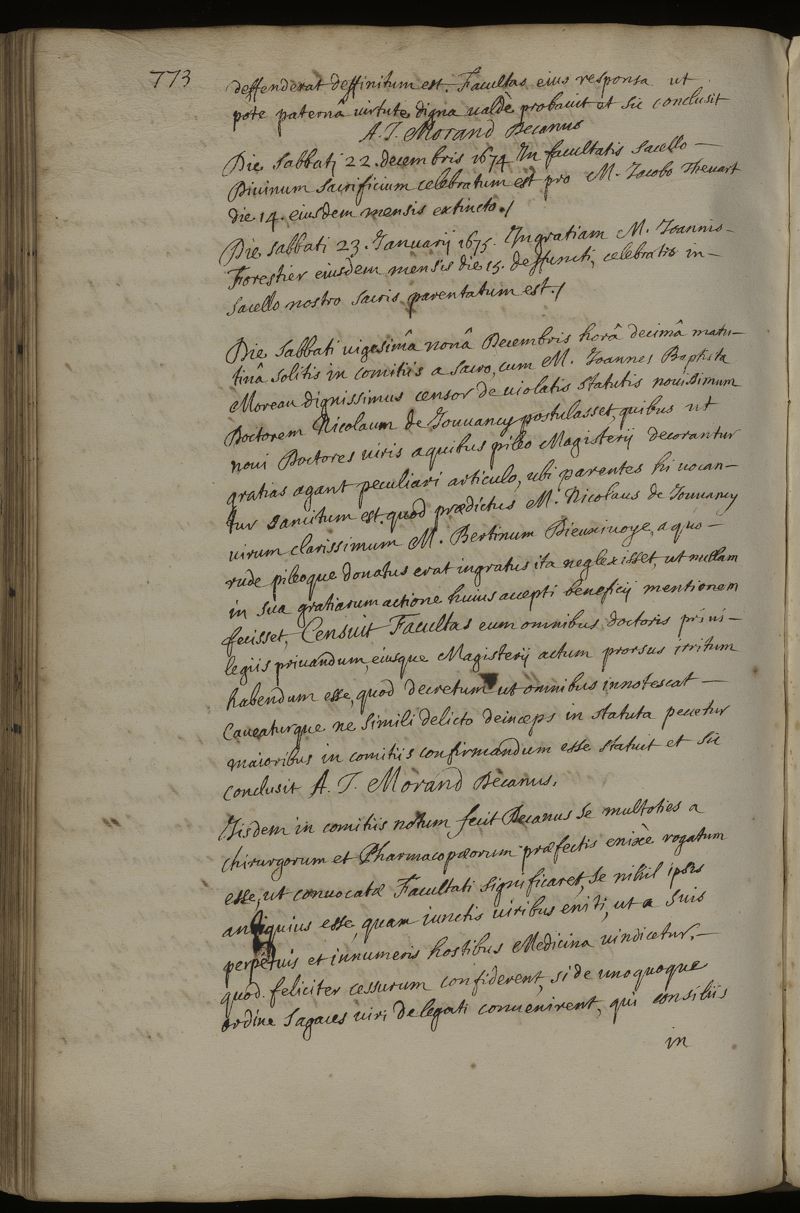 773
deffenderat deffinitum est. Facultas eius responsa ut
pote paternâ virtute digna valdè probavit et sic conclusit
A. J. Morand Decanus
Die Sabbatj 22. decembris 1674 In facultatis sacello —
Divinum sacrificium celebratum est pro M. Jacobo Thevart
die 14. eiusdem mensis extincto./
Die sabbati 23. Januarij 1675. In gratiam M. Joannis-
Forestier eiusdem mensis die 15. deffuncti, celebratis in —
sacello nostro sacris parentatum est./
Die Sabbati vigesimâ nonâ Decembris horâ decimâ matu-
tinâ solitis in comitiis a sacro, cum M. Joannes Baptista
Moreau dignissimus censor de violatis statutis novissimum
Doctorem Nicolaum de Jouvancy postulasset, quibus ut
novi Doctores viris a quibus pileo Magisterij decorantur
gratias agant peculiari articulo, ubi parentes hi vocan-
tur sancitum est. quod prædictus M. Nicolaus de Jouvancy
virum clarissimum M. Bertinum Dieuxivoye, a quo —
rude pileoque donatus erat ingratus ita neglexisset, ut nullam
in sua gratiarum actione huius accepti beneficij mentionem
fecisset, Censuit Facultas eum omnibus doctoris privi-
legiis privandum, eiusque Magisterij actum prorsus irritum
habendum esse, quod decretum ut omnibus innotescat —
Caveaturque ne simili delicto deinceps in statuta peccetur
maioribus in comitiis confirmandum esse statuit et sic
conclusit A. J. Morand Decanus.
Iisdem in comitiis notum fecit Decanus se multoties a
chirurgorum et Pharmacopæorum præfectis enixè rogatum
esse, ut convocatæ Facultati significaret, se nihil ipsis
antiquius esse, quam iunctis viribus eniti, ut a suis
perpetuis et innumeris hostibus Medicina vindicetur, —
quod feliciter cessurum confiderent, si de unoquoque
ordine sagaces viri delegati convenirent, qui consiliis
in